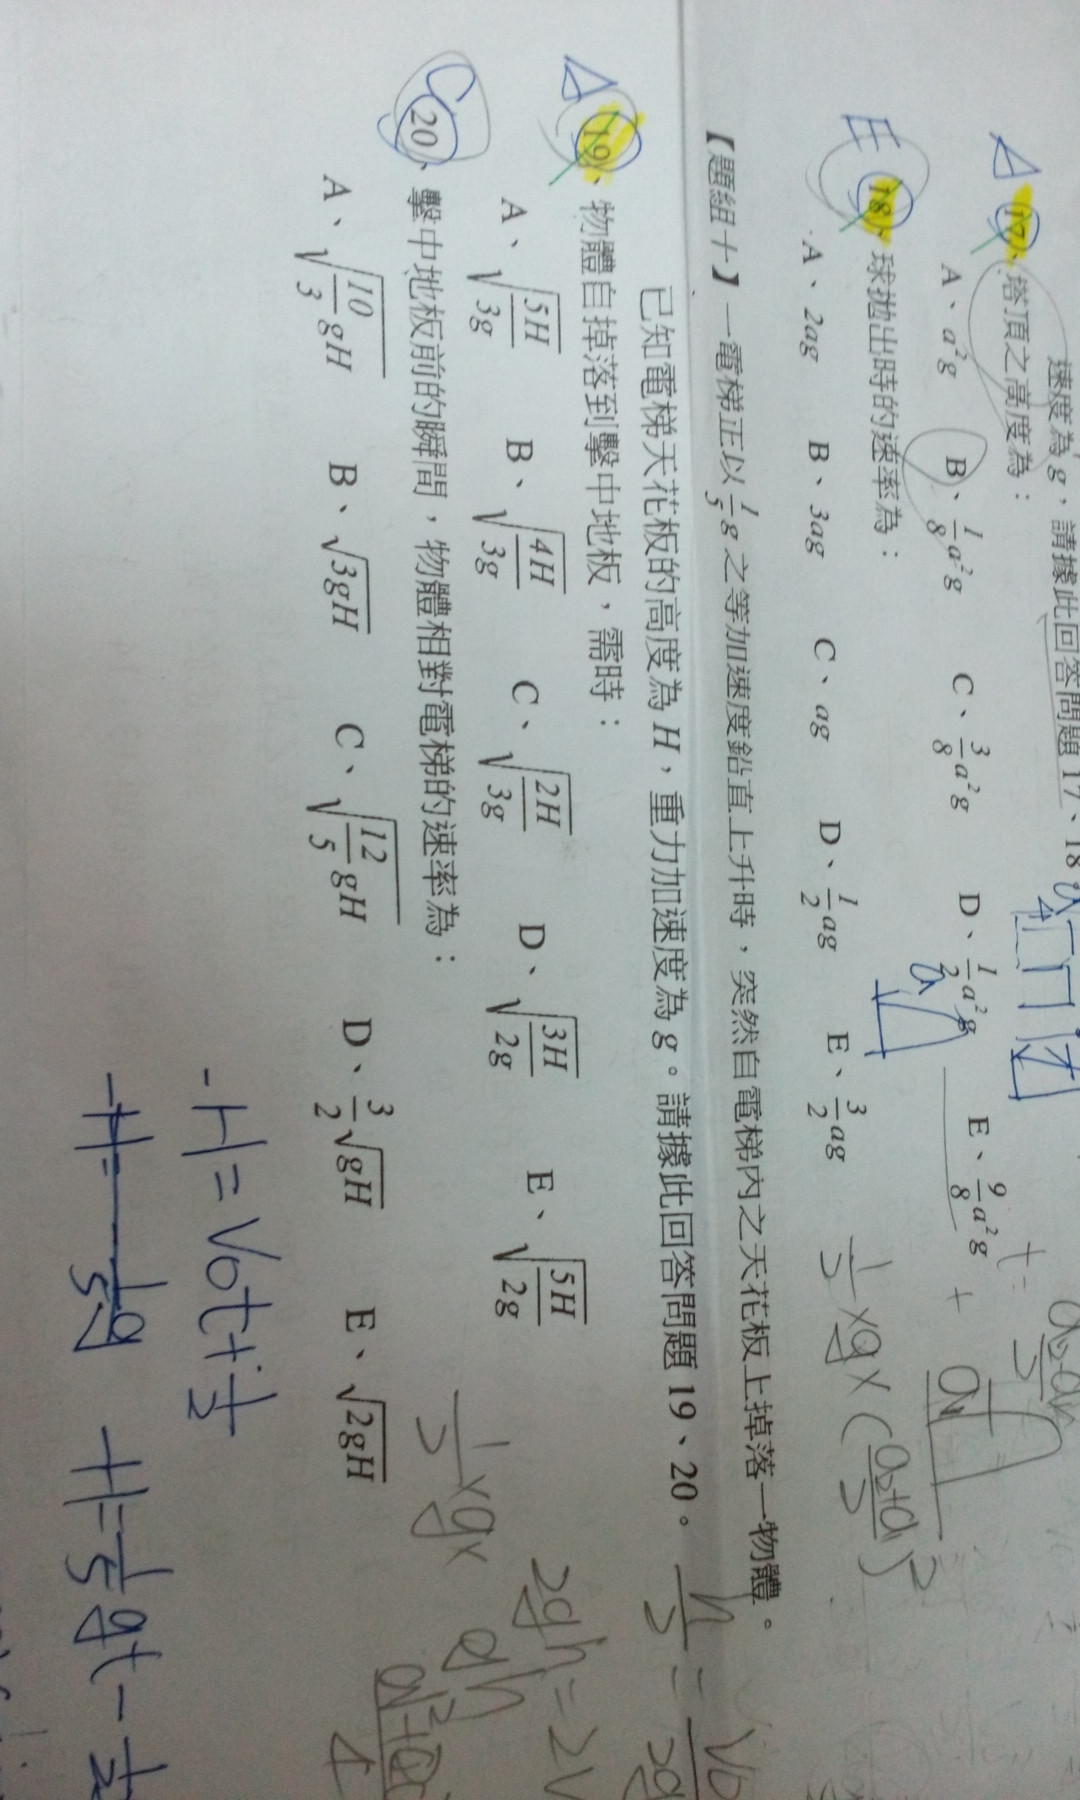 速度為 g，請據此回答問題 17、18
17、塔頂之高度為：
A、a²g B、1/8 a²g C、3/8 a²g D、1/2 a²g E、9/8 a²g
E 18、球拋出時的速率為：
A、2ag B、3ag C、ag D、1/2 ag E、3/2 ag
【題組十】一電梯正以 1/5 g 之等加速度鉛直上升時，突然自電梯內之天花板上掉落一物體。
已知電梯天花板的高度為 H，重力加速度為 g。請據此回答問題 19、20。
19、物體自掉落到擊中地板，需時：
A、√(5H/3g) B、√(4H/3g) C、√(2H/3g) D、√(3H/2g) E、√(5H/2g)
C 20、擊中地板前的瞬間，物體相對電梯的速率為：
A、√(10/3 gH) B、√(3gH) C、√(12/5 gH) D、3/2 √(gH) E、√(2gH)
-H = V₀t + 1/2
H = 1/5 gt - 1/2